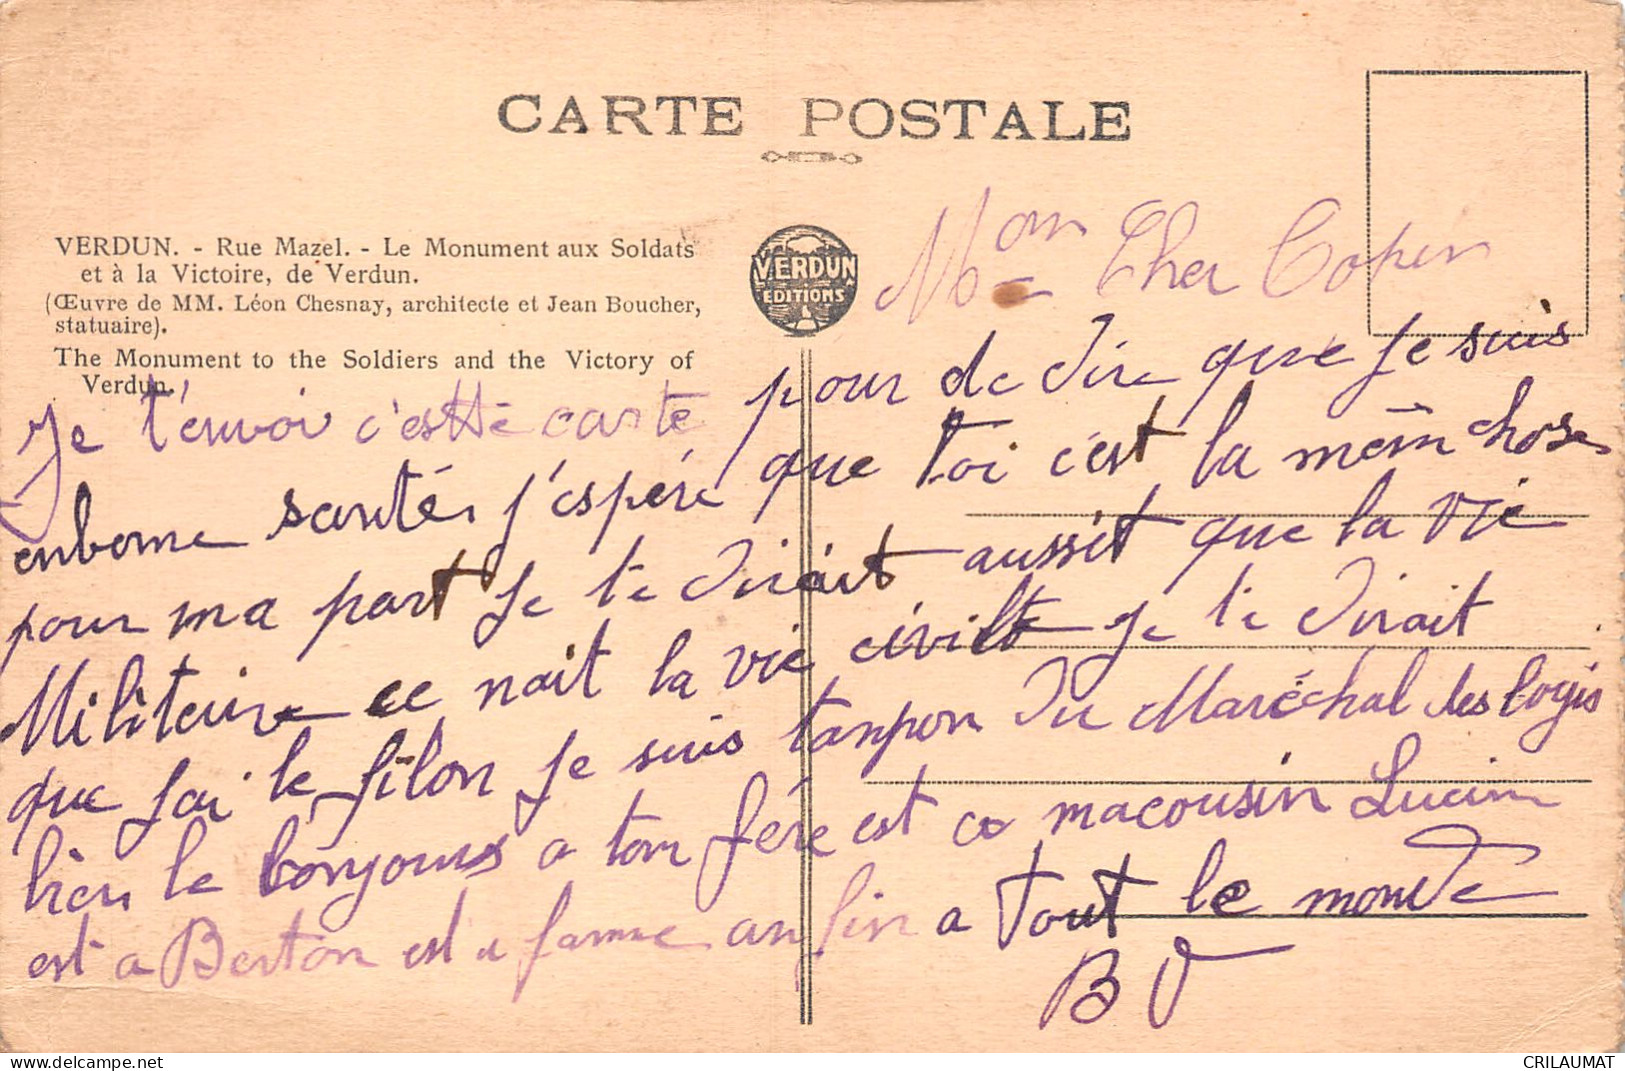 CARTE POSTALE
VERDUN. - Rue Mazel. - Le Monument aux Soldats
et à la Victoire, de Verdun.
(Œuvre de MM. Léon Chesnay, architecte et Jean Boucher,
statuaire).
The Monument to the Soldiers and the Victory of
Verdun.
VERDUN
EDITIONS
Mon Cher Copen
Je t'envoi c'estte carte pour de dire que je suis
enbonne santé, j'espére que toi c'est la mêm chose
pour ma part je te dirait aussit que la vie
Militaire ce nait la vie civile je te dirait
que jai le filon je suis tanpon du Maréchal des logis
bien le bonjours a ton fére est a macousin Lucien
est a Berton est a famme anfin a tout le monde
BV
www.delcampe.net
CRILAUMAT